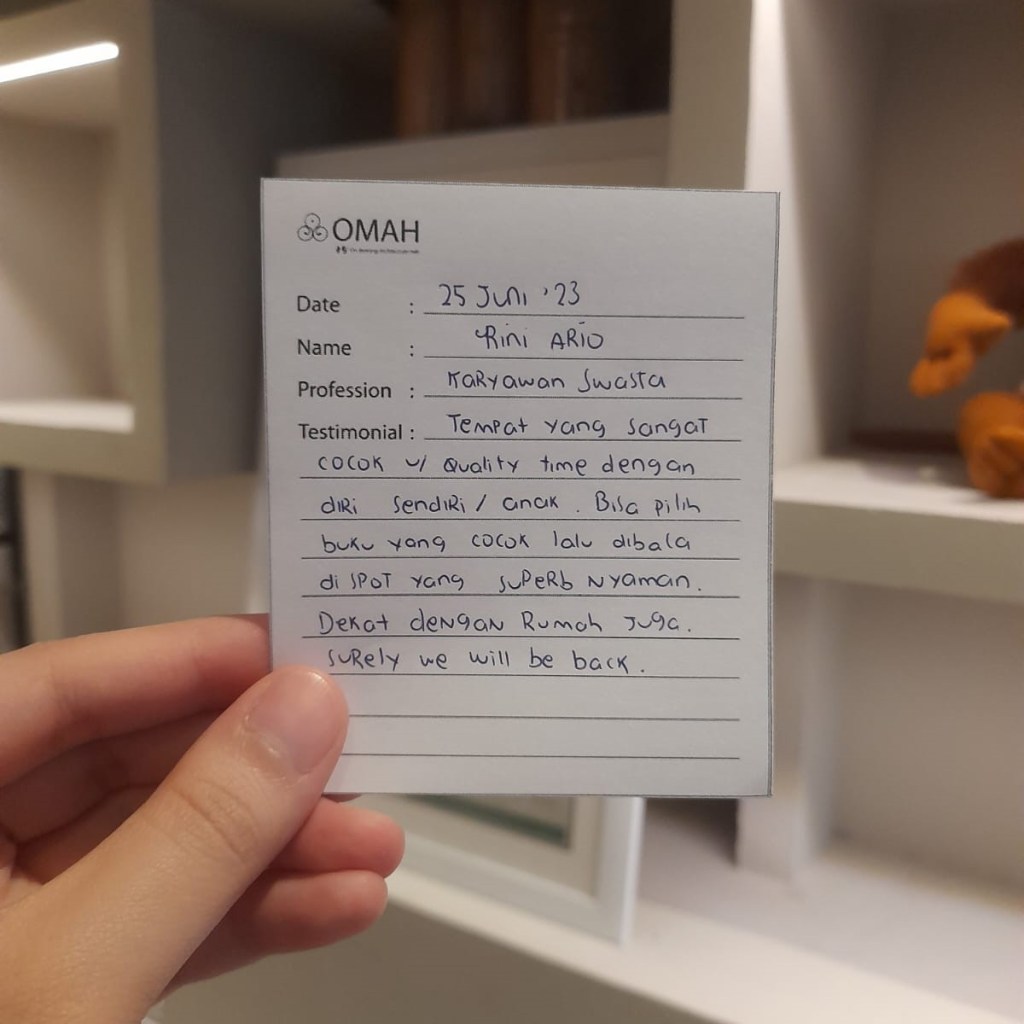 OMAH
Date : 25 Juni '23
Name : Rini ARIO
Profession : Karyawan Swasta
Testimonial : Tempat yang sangat
cocok w/ Quality time dengan
diri sendiri / anak. Bisa pilih
buku yang cocok lalu dibaca
di spot yang superb nyaman.
Dekat dengan Rumah juga.
surely we will be back.